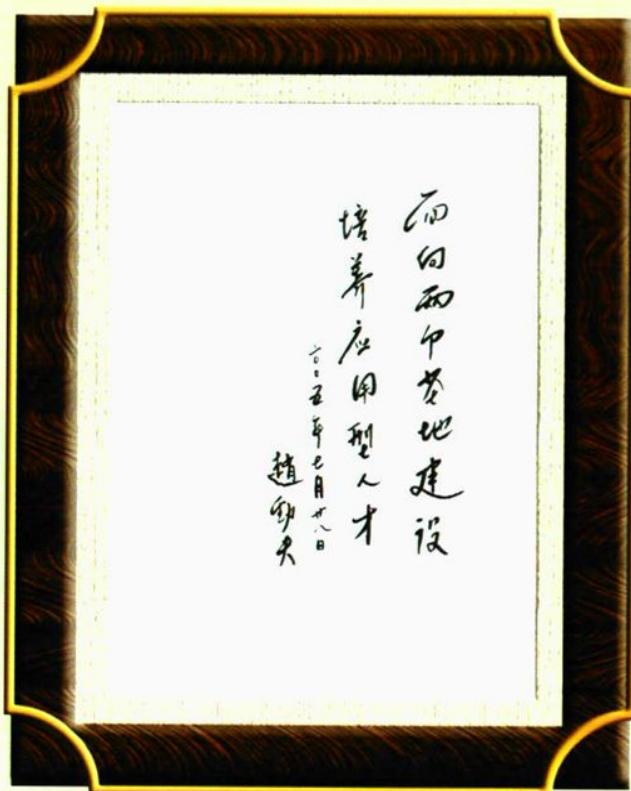 面向两个基地建设
培养应用型人才
二〇〇五年七月廿八日
趙勁夫